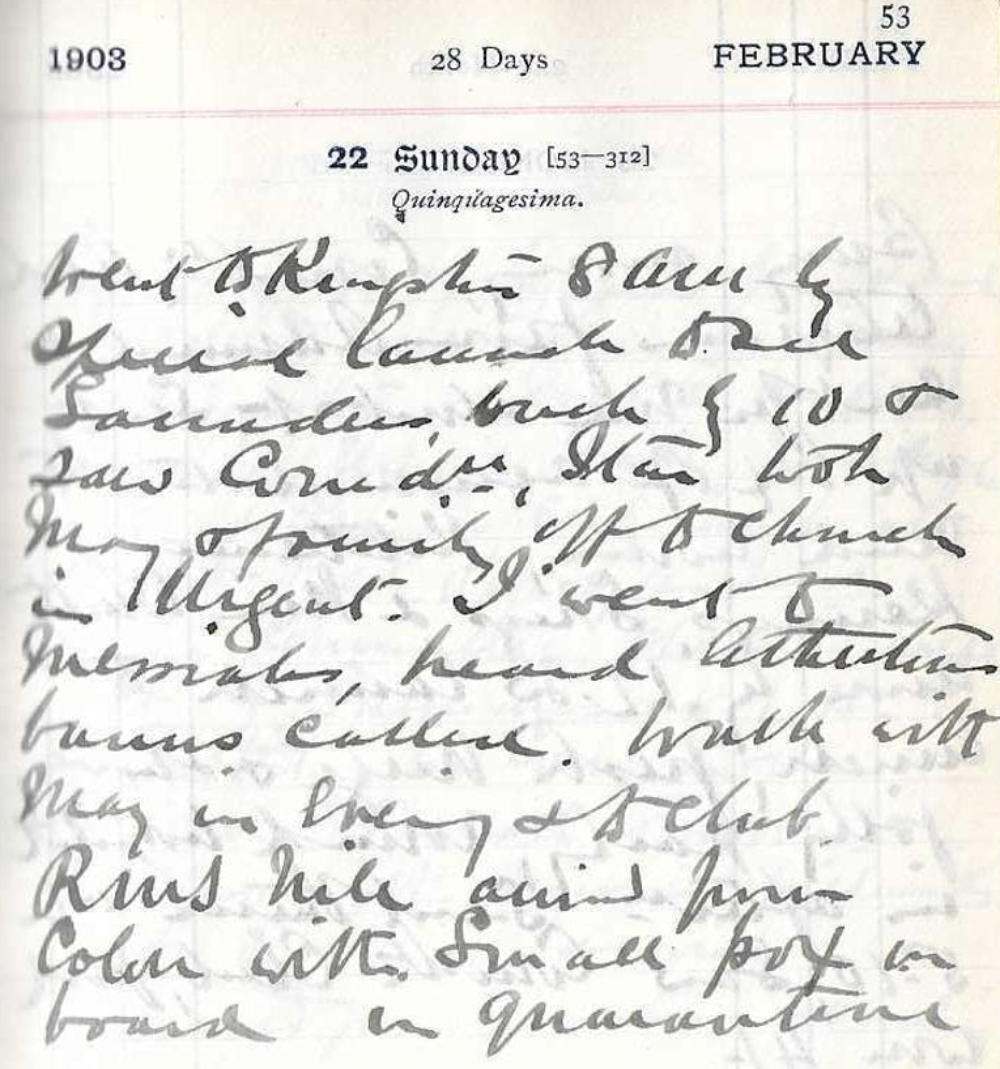 53
1903 28 Days FEBRUARY
22 Sunday [53—312]
Quinquagesima.
Went to Kingston 8 am by
Special launch to see
Saunders, back by 10 &
saw Comdre, then took
May & family off to Church
in Urgent. I went to
Memorials, heard
banns called. Walk with
May in Evening & to Club
RMS Nile arrived from
Colon with Small pox on
board in quarantine